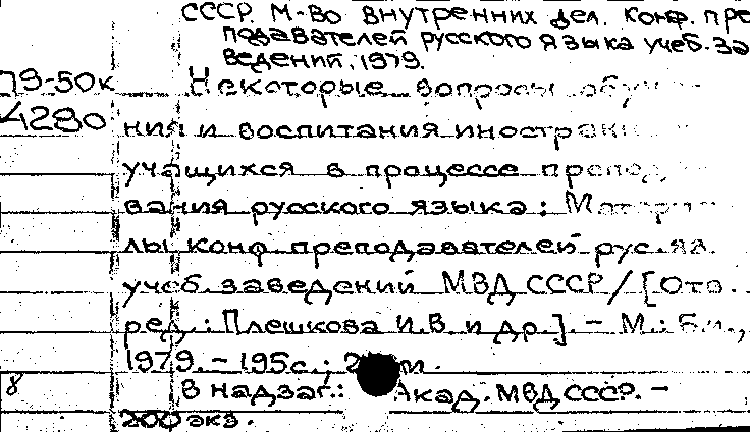 СССР. М-во внутренних дел. Конф. пре
подавателей русского языка учеб. за
ведений, 1979.
79-50к Некоторые вопросы обу
4280 ния и воспитания иностран
учащихся в процессе препод
вания русского языка: Матери
лы конф. преподавателей рус. яз.
учеб. заведений МВД СССР / [Отв.
ред.: Плешкова И.В. и др.]. - М.: Б.и.,
1979. - 195с.;
8 В надзаг.: Акад. МВД СССР. -
200 экз.